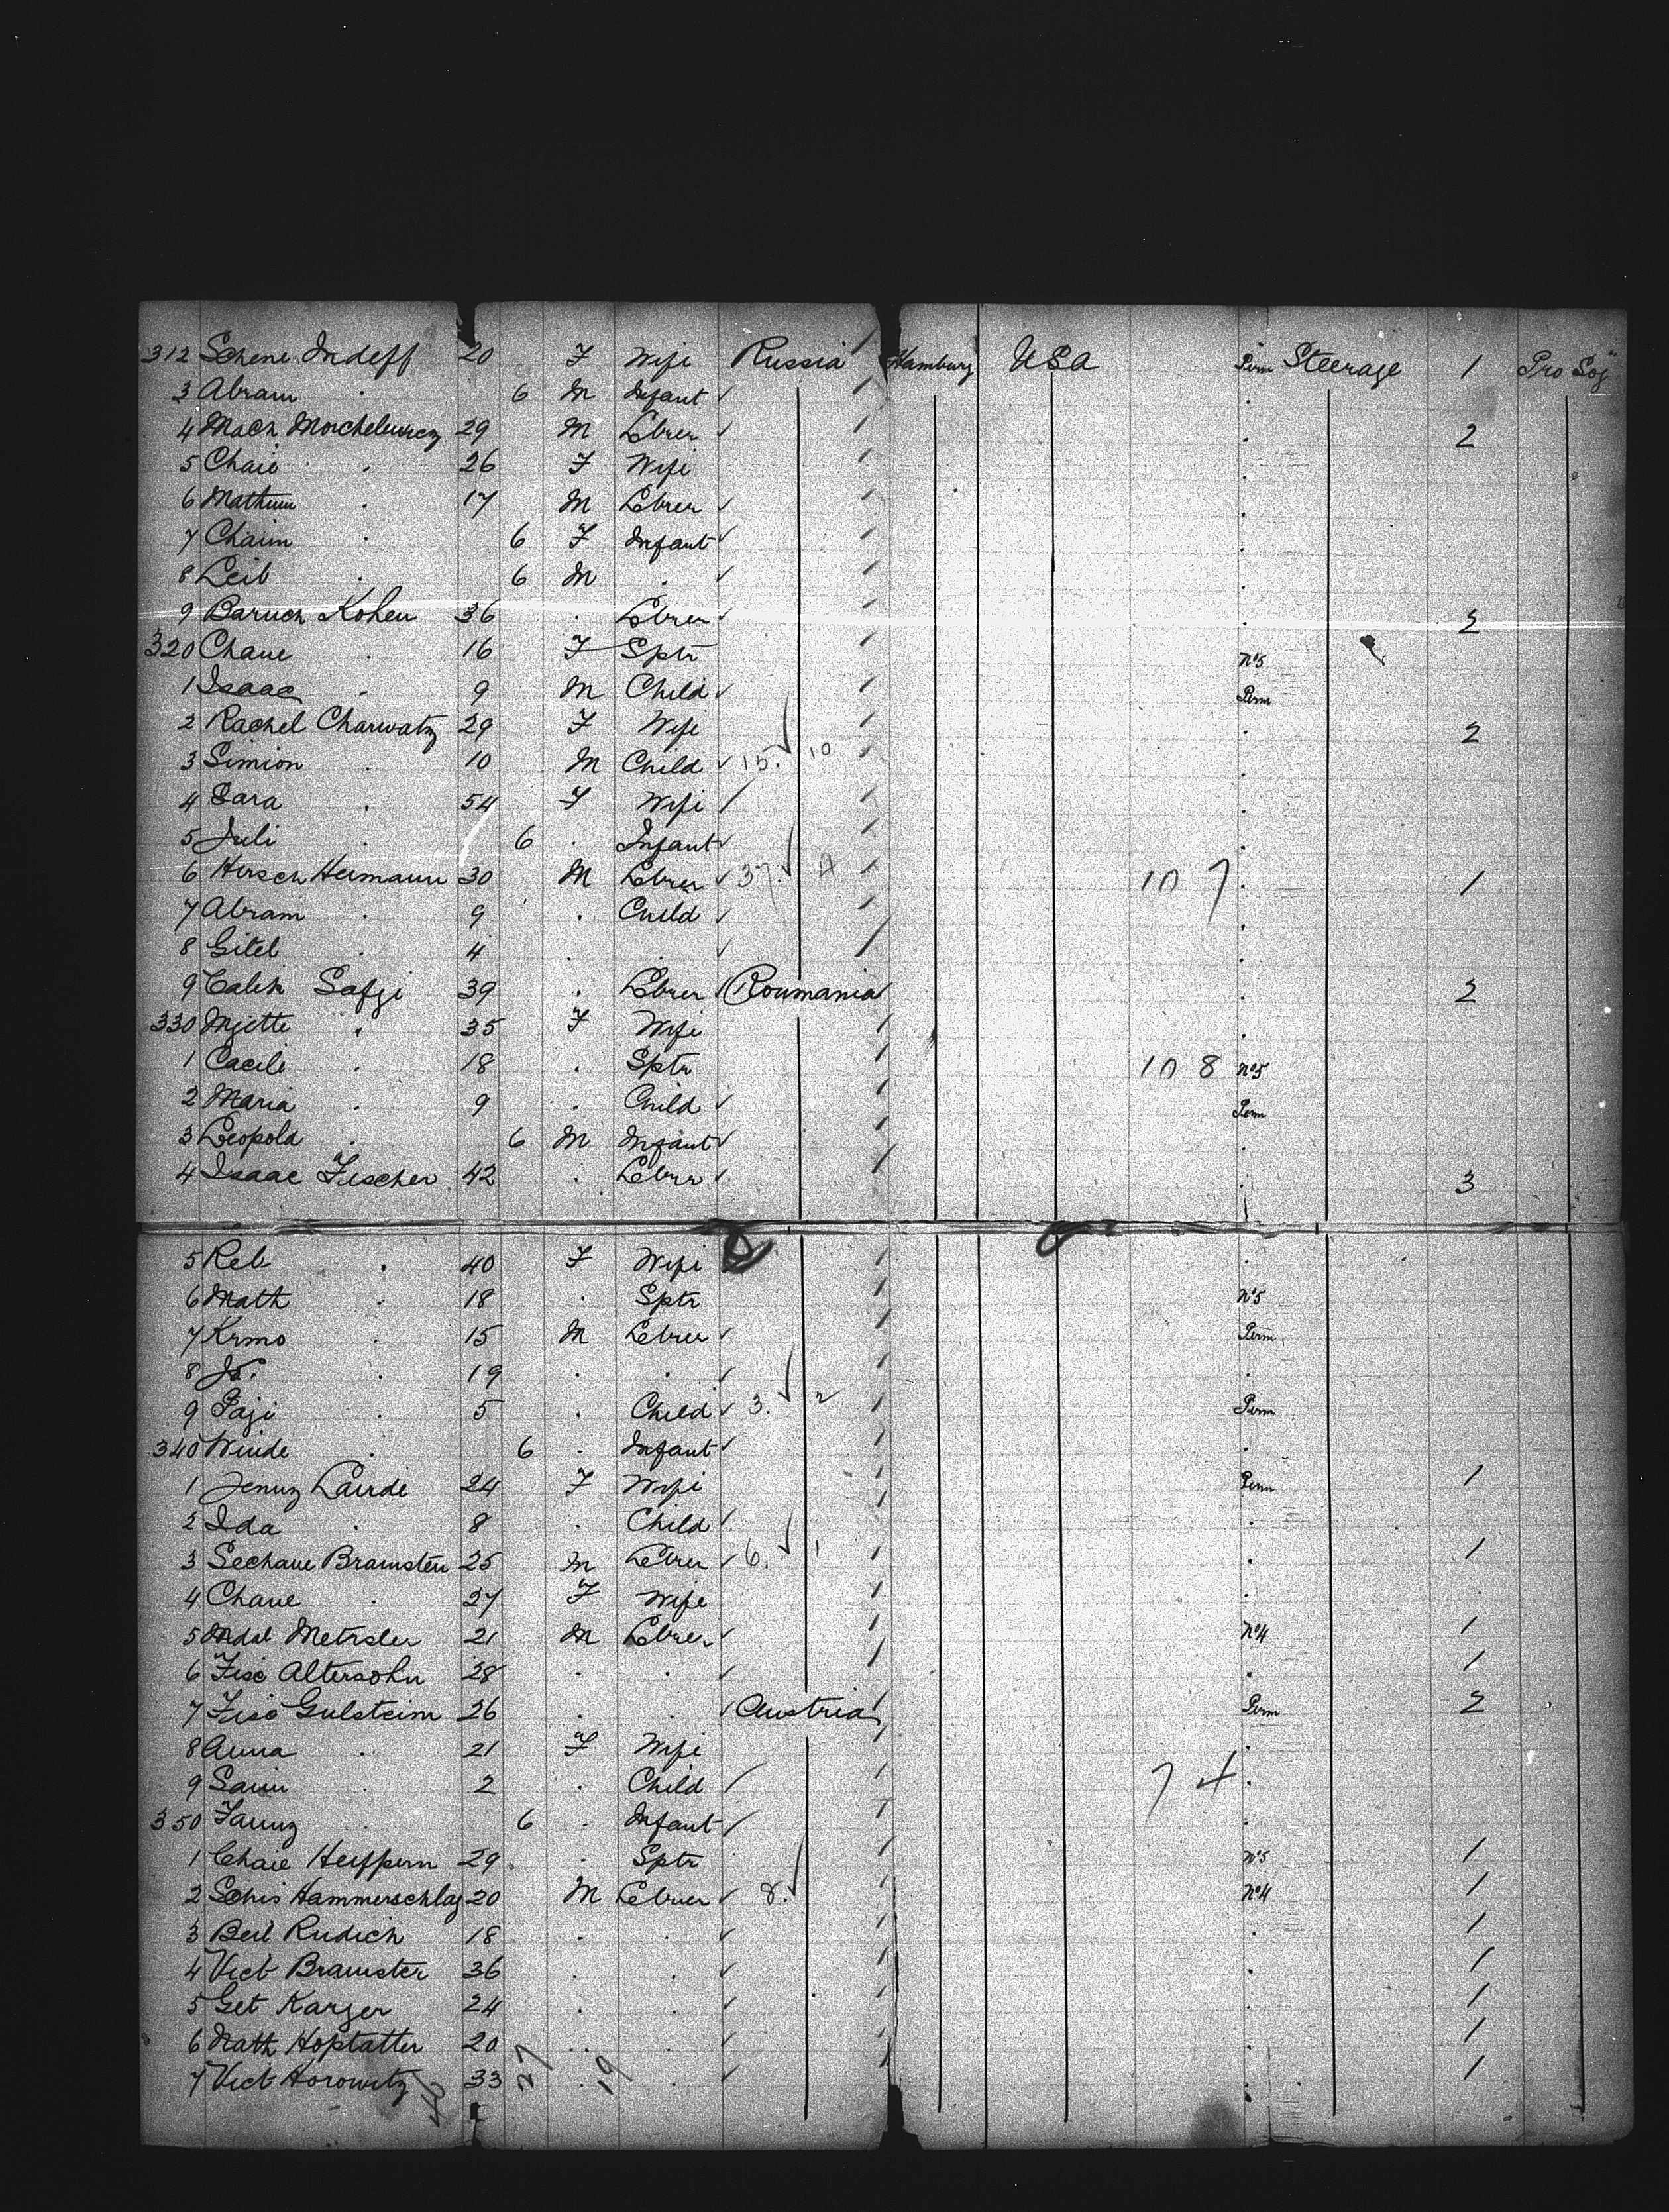 312 Schene Indeff 20 F Wife Russia Hamburg USA Perm Steerage 1 Pro Sog
3 Abram . 6 M Infant
4 Mach Morchelewicz 29 M Lbrer 2
5 Chaie . 26 F Wife
6 Mathum . 17 M Lbrer
7 Chaim . 6 F Infant
8 Leib . 6 M .
9 Baruch Kohen 36 . Lbrer 2
320 Chane . 16 F Sptr No 5
1 Isaac . 9 M Child Perm
2 Rachel Charwatz 29 F Wife . 2
3 Simion . 10 M Child 15. 10
4 Sara . 54 F Wife
5 Juli . 6 . Infant
6 Hersch Heimann 30 M Lbrer 37. 10 7 1
7 Abram . 9 . Child
8 Gitel . 4 . .
9 Calik Safzi 39 . Lbrer Roumania 2
330 Mjette . 35 F Wife
1 Cacili . 18 . Sptr 10 8 No 5
2 Maria . 9 . Child Perm
3 Leopold . 6 M Infant
4 Isaac Fischer 42 . Lbrer 3
5 Reb . 40 F Wife
6 Math . 18 . Sptr No 5
7 Krmo . 15 M Lbrer Perm
8 Js. . 19 . .
9 . 5 . Child 3. 2 Perm
340 Winde . 6 . Infant
1 Jenny Lairde 24 F Wife Perm 1
2 Ida . 8 . Child
3 Sechane Bramstein 25 M Lbrer 6. 1 . 1
4 Chane . 27 F Wife
5 Metrsler 21 M Lbrer No 4 1
6 Altersohn 28 . . 1
7 Gulsteim 26 . . Austria Perm 2
8 Anna . 21 F Wife
9 . 2 . Child 7 4
350 Fanny . 6 . Infant
1 Chaie Heifpern 29 . Sptr No 5 1
2 Schis Hammerschlag 20 M Lbrer 8. No 4 1
3 Beil Rudich 18 . . 1
4 Vict Bramster 36 . . 1
5 Get Karger 24 . . 1
6 Nath Hoptatter 20 . . 1
7 Vict Horowitz 33 . . 1
27 19